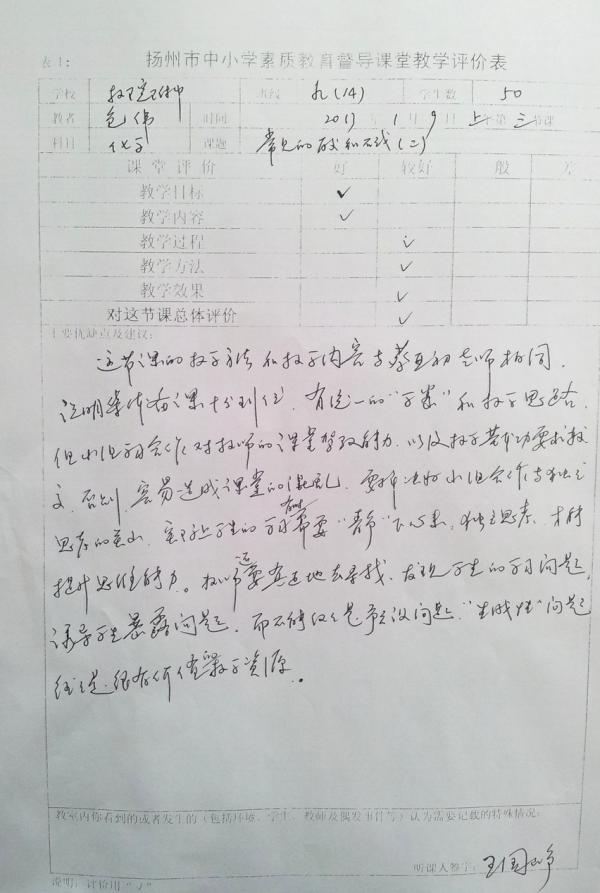 表1:
扬州市中小学素质教育督导课堂教学评价表
学校 班级 九(14) 学生数 50
教者 包伟 时间 2017年1月9日上午第三节课
科目 化学 课题 常见的酸和碱(二)
课堂评价 好 较好 一般 差
教学目标 ✓
教学内容 ✓
教学过程 ✓
教学方法 ✓
教学效果 ✓
对这节课总体评价 ✓
主要优缺点及建议:
这节课的教学方法和教学内容与蔡亚初老师相同,
说明集体备课十分到位,有统一的“学案”和教学思路,
但小组合作对教师的课堂驾驭能力,以及教学基本功要求较
高,否则,容易造成课堂的混乱,要解决好小组合作与独立
思考的关系,实际上学生的学习有时需要“静”下心来,独立思考,才能
提升思维能力。教师还要真正地去寻找、发现学生的学习问题,
诱导学生暴露问题,而不能仅仅是预设问题,“生成性”问题
往往是很有价值教学资源。
教室内你看到的或者发生的(包括环境、学生、教师及偶发事件等)认为需要记载的特殊情况:
听课人签字: 王国峥
说明: 评价用“✓”